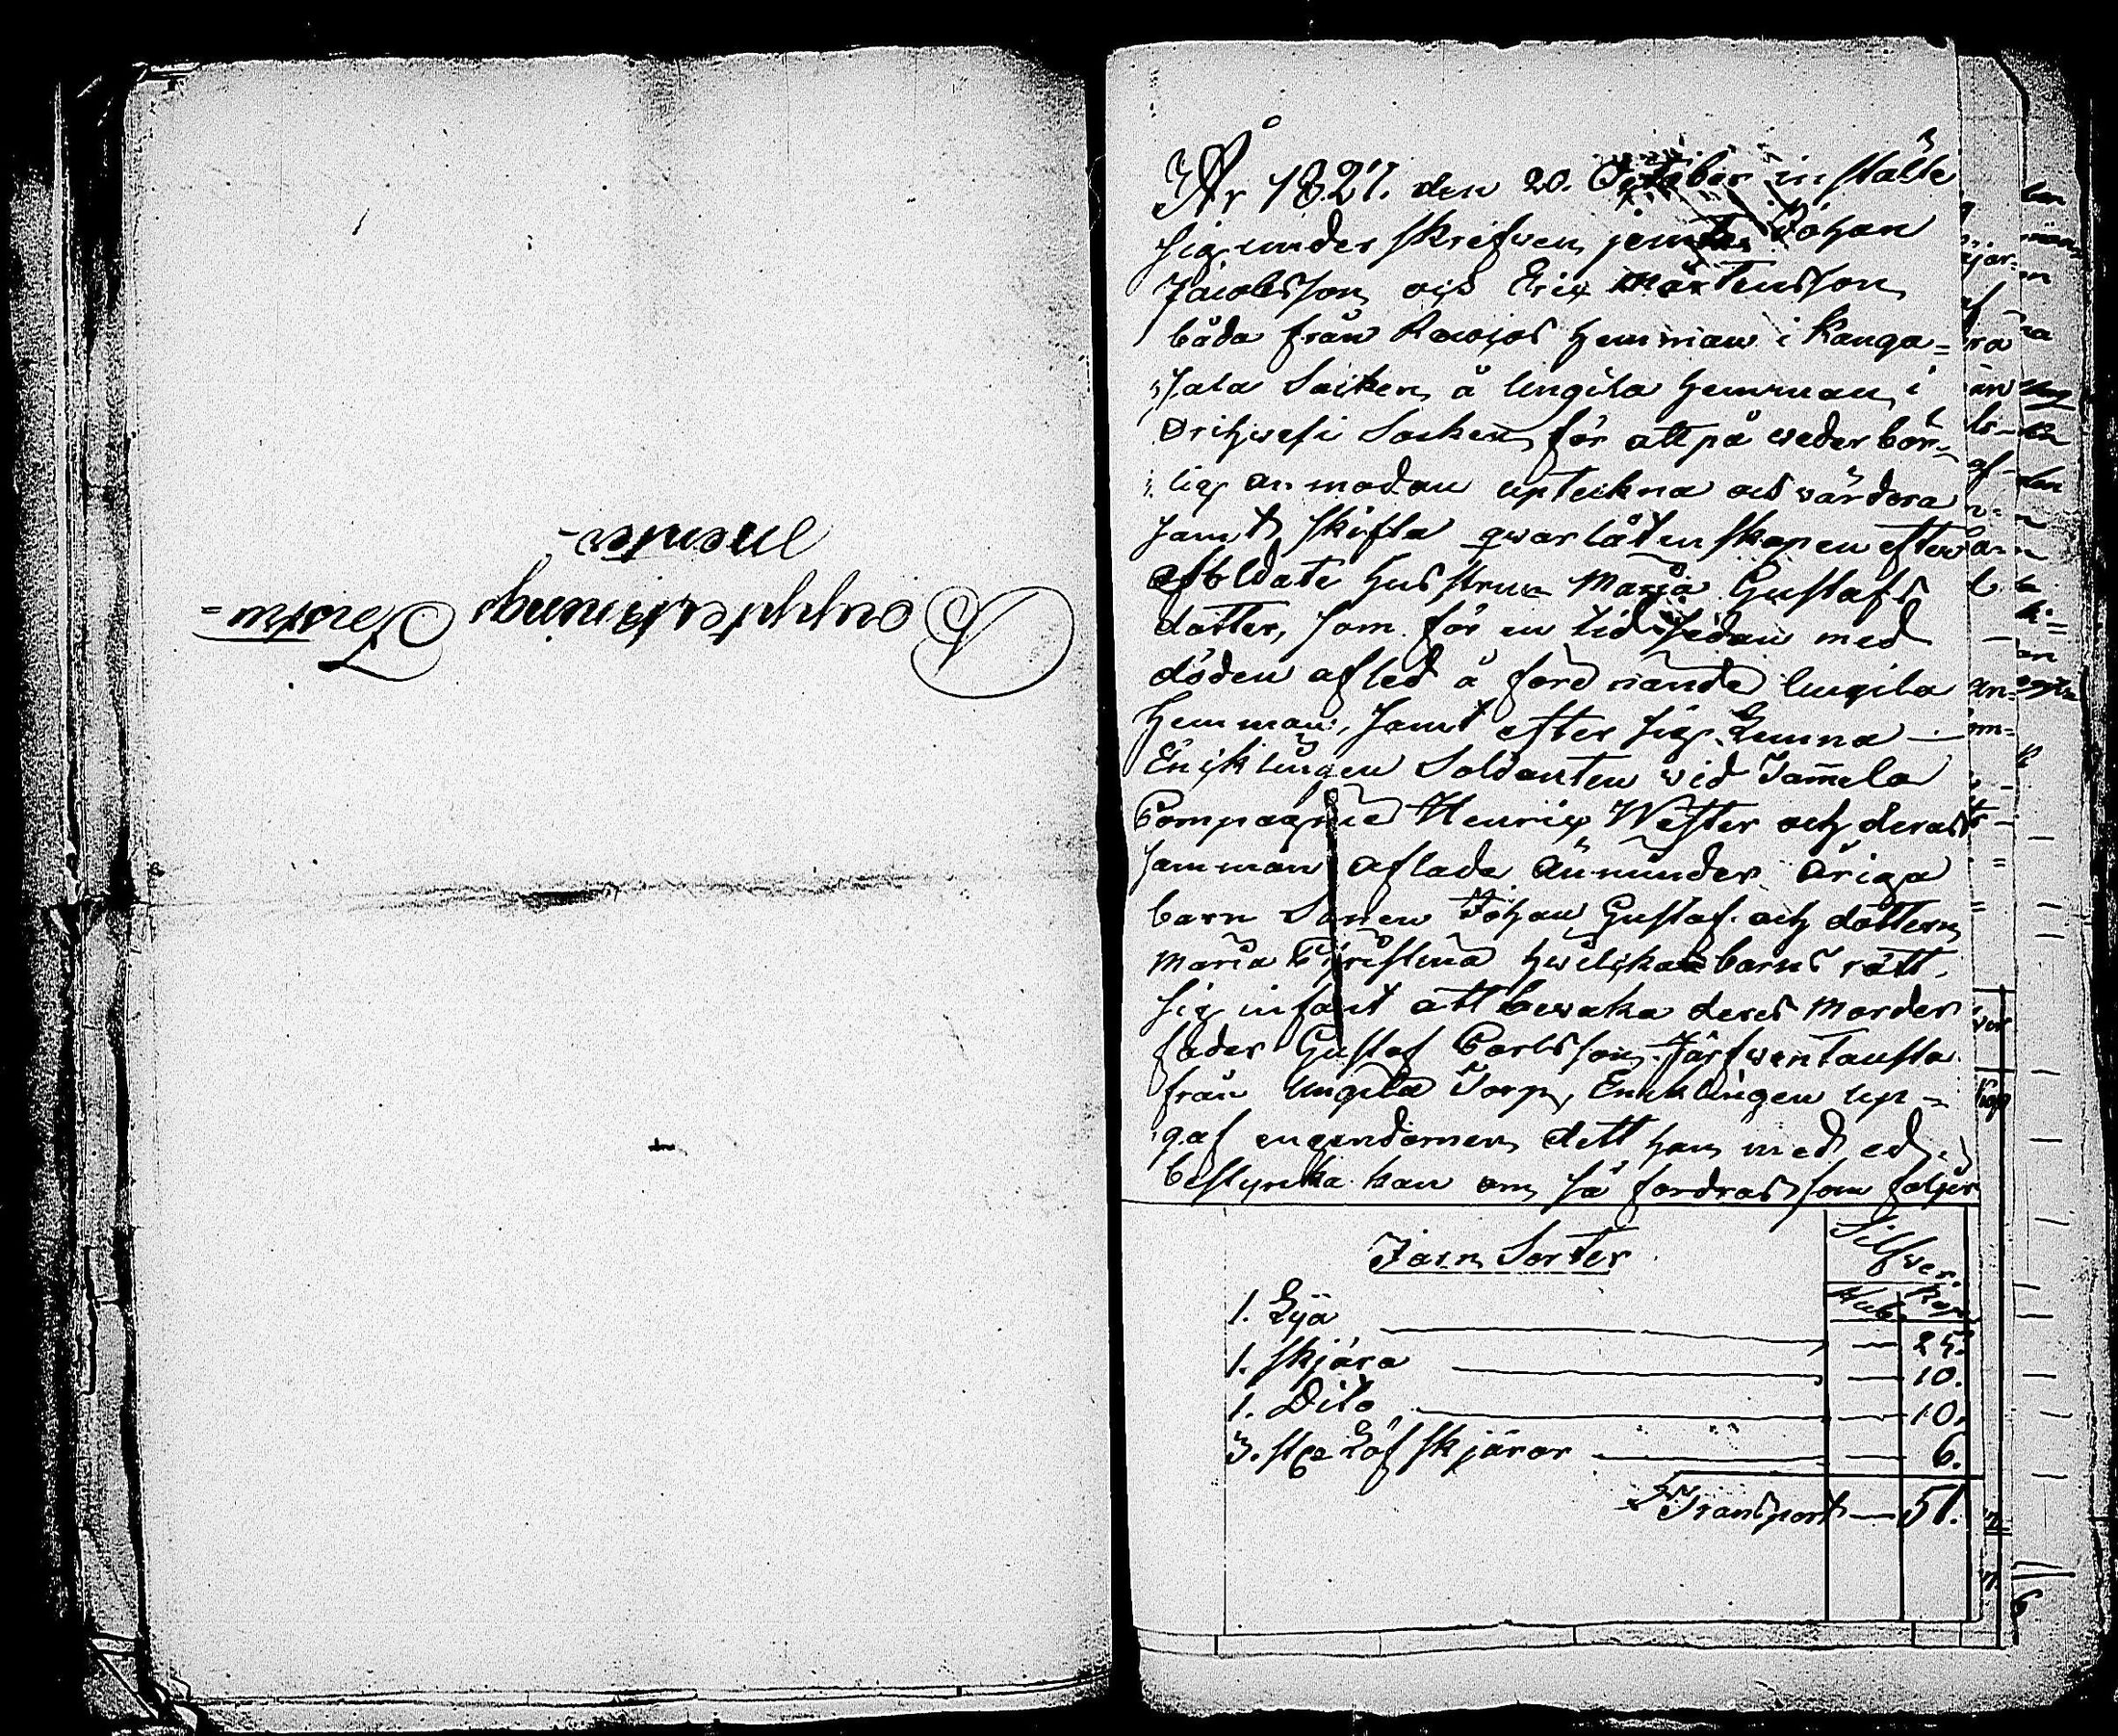 Bouppteknings Instru=
menter
År 1827. den 20. October instälte
sig underskrifwen jemte Johan
Jacobsson och Eric Mårtensson
båda från Rawjos Hemman i Kanga=
sala Socken å Ungila Hemman i
Orihwesi Socken för att på wederbör-
lig anmodan upteckna och värdera
samt skifta qwarlåtenskapen efter
aflidna Hustrun Maria Gustafs
dotter, som för en tid sedan med
döden afled å förenämnde Ungila
Hemman, samt efter sig Lemna
Enklingen Soldanten wid Jammela
Compagnie Henric Wester och deras
samman aflade änu under åriga
barn Sonen Johan Gustaf och dottern
Maria Christina hwilcka barns rätt
sig infant att bewaka deras Morder
fader Gustaf Carlsson Järfwentausta
från Ungila Torp, Enklingen up=
gaf engendomen dett han med ed
bestyrka kan om så fordras som följer
Järn Sorter
Silfwer.
Rub. Kop.
1. Lya — 25.
1. Skjära — 10.
1. Dito — 10.
3. st Löf skjäror — 6.
Transport — 51.